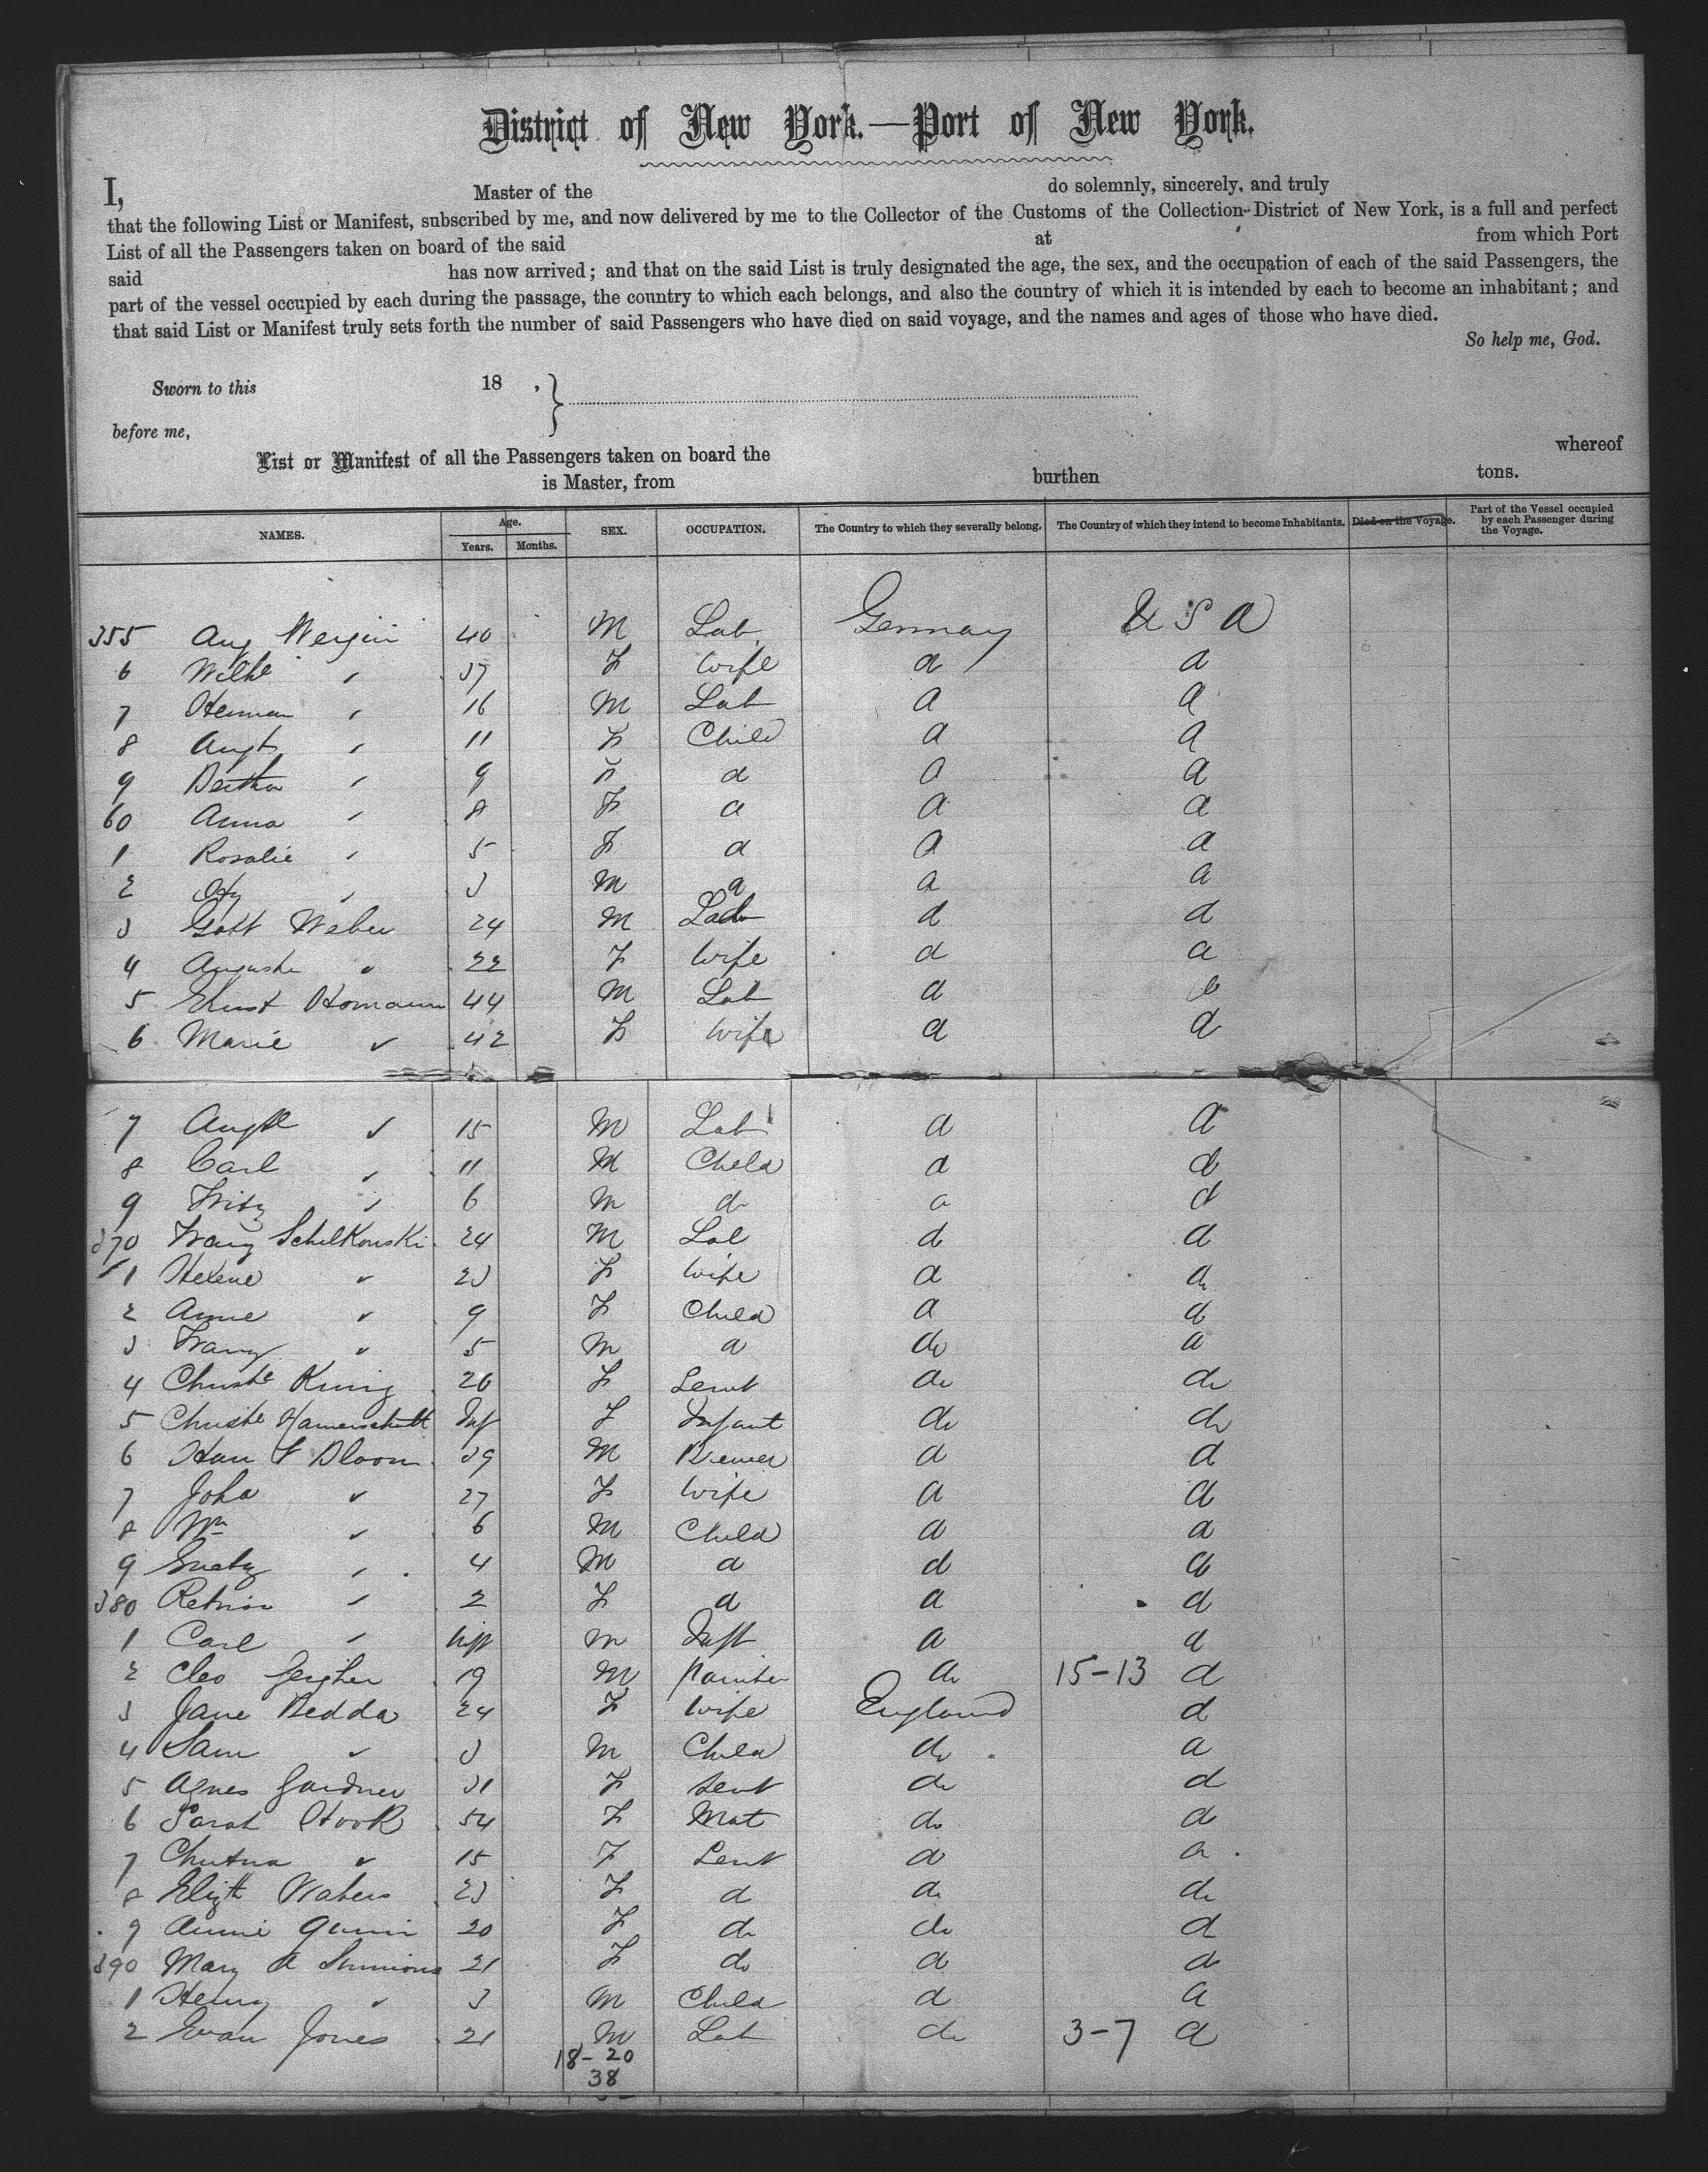 District of New York.—Port of New York.
I, Master of the do solemnly, sincerely, and truly
that the following List or Manifest, subscribed by me, and now delivered by me to the Collector of the Customs of the Collection District of New York, is a full and perfect
List of all the Passengers taken on board of the said at from which Port
said has now arrived; and that on the said List is truly designated the age, the sex, and the occupation of each of the said Passengers, the
part of the vessel occupied by each during the passage, the country to which each belongs, and also the country of which it is intended by each to become an inhabitant; and
that said List or Manifest truly sets forth the number of said Passengers who have died on said voyage, and the names and ages of those who have died.
So help me, God.
Sworn to this 18 ,
before me,
List or Manifest of all the Passengers taken on board the whereof
is Master, from burthen tons.
NAMES. Age. Years. Months. SEX. OCCUPATION. The Country to which they severally belong. The Country of which they intend to become Inhabitants. Died on the Voyage. Part of the Vessel occupied by each Passenger during the Voyage.
355 Aug Wergin 40 M Lab Germany U S A
6 Wilhe " 37 F Wife d d
7 Herman " 16 M Lab d d
8 Augte " 11 F Child d d
9 Bertha " 9 F d d d
60 Anna " 8 F d d d
1 Rosalie " 5 F d d d
2 " 3 M d d d
3 Gott Weber 24 M Lab d d
4 Auguste " 22 F Wife d d
5 Ernst Homann 44 M Lab d d
6 Marie " 42 F Wife d d
7 " 15 M Lab d d
8 Carl " 11 M Child d d
9 Fritz " 6 M do d d
370 Franz Schelkowski 24 M Lab d d
1 Helene " 23 F Wife d do
2 Anne " 9 F Child d d
3 Franz " 5 M d do d
4 Christe König 26 F Servt do do
5 Christe Inf F Infant do do
6 Han F Bloom 39 M Brewer d d
7 Joha " 27 F Wife d d
8 Wm " 6 M Child d d
9 " 4 M d d d
380 " 2 F d d d
1 Carl " Inft M Inft d d
2 Cleo 19 M Painter do 15-13 d
3 Jane Bedda 24 F Wife England d
4 Sam " 3 M Child do d
5 Agnes Gardner 31 F Servt do d
6 Sarah Hook 54 F Mat do d
7 " 15 F Servt d d
8 Elizth Waters 23 F d do do
9 Annie Quinn 20 F do do d
390 Mary A Simmons 21 F do d d
1 Henry " 3 M Child d d
2 Evan Jones 21 M Lab do 3-7 d
18-20
38